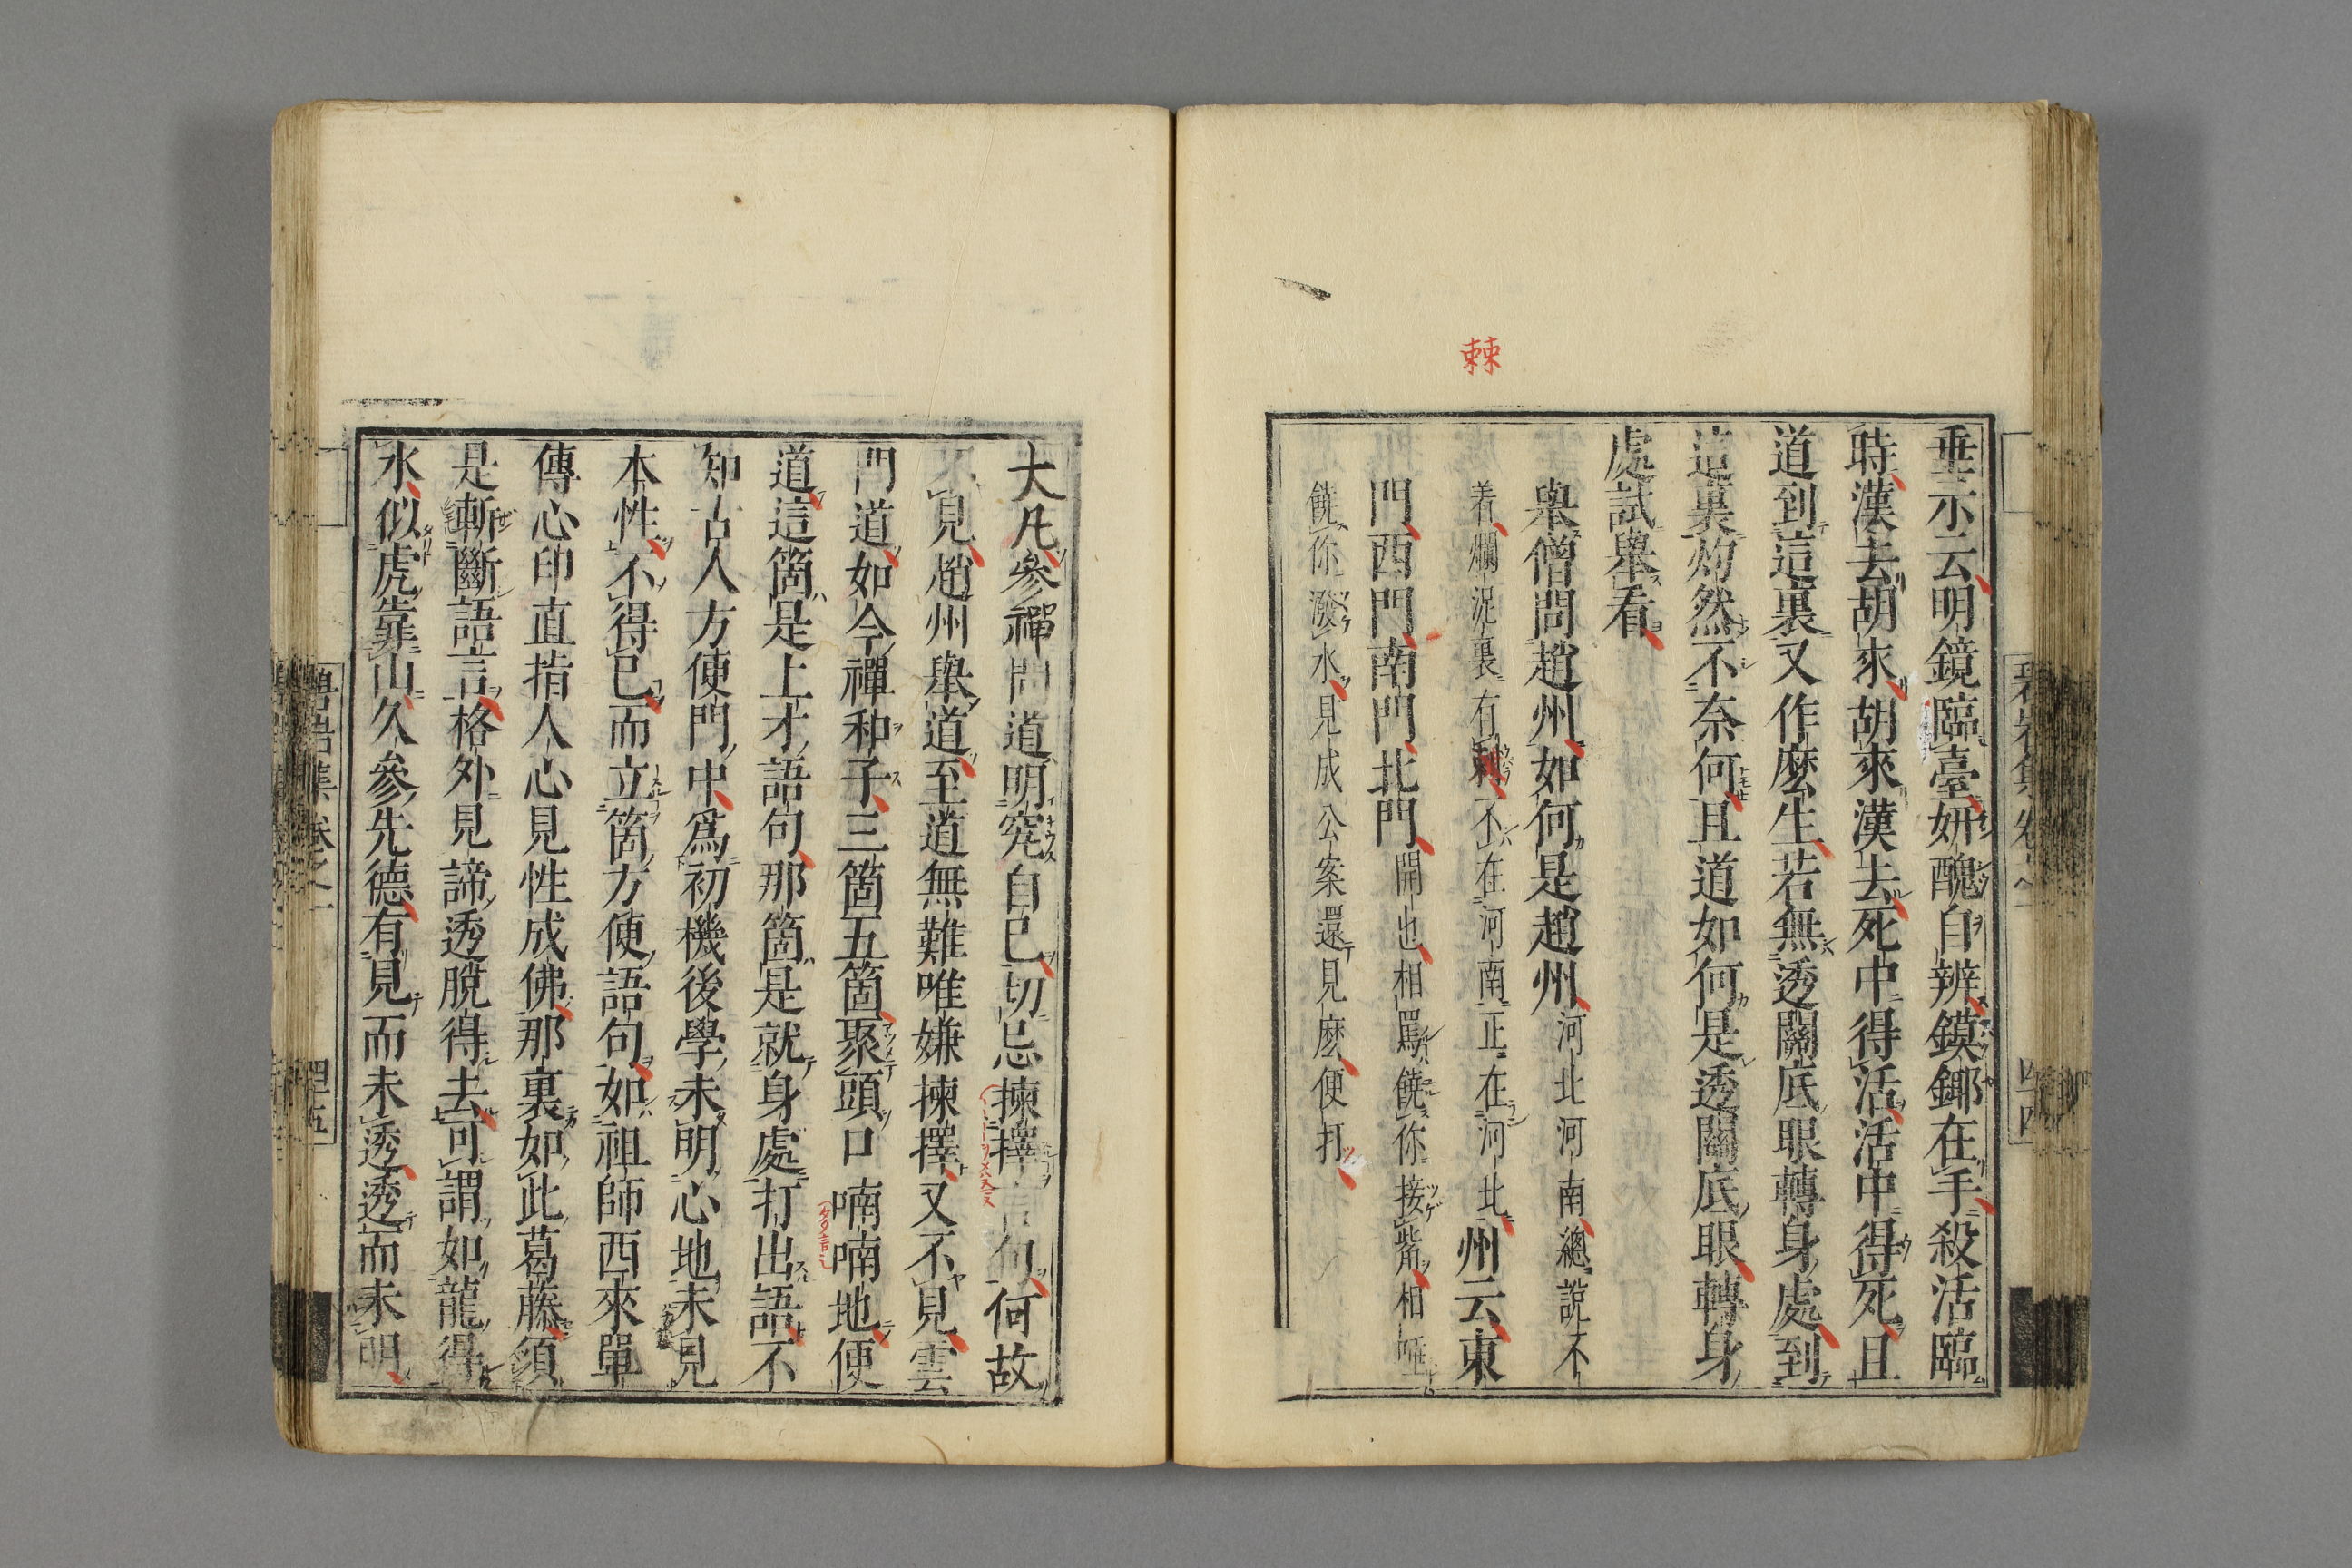 棘
垂示云明鏡臨臺妍醜自辨鏌鎁在手殺活臨
時漢去胡來胡來漢去死中得活活中得死且
道到這裏又作麽生若無透關底眼轉身處到
這裏灼然不奈何且道如何是透關底眼轉身
處試舉看
舉僧問趙州如何是趙州河北河南總說不
着爛泥裏有刺不在河南正在河北州云東
門西門南門北門開也相罵饒你接觜相唾
饒你潑水見成公案還見麽便打
大凡參禪問道明究自己切忌揀擇言句何故
不見趙州舉道至道無難唯嫌揀擇又不見雲
門道如今禪和子三箇五箇聚頭口喃喃地便
道這箇是上才語句那箇是就身處打出語不
知古人方便門中爲初機後學未明心地未見
本性不得已而立箇方便語句如祖師西來單
傳心印直指人心見性成佛那裏如此葛藤須
是斬斷語言格外見諦透脫得去可謂如龍得
水似虎靠山久參先德有見而未透透而未明